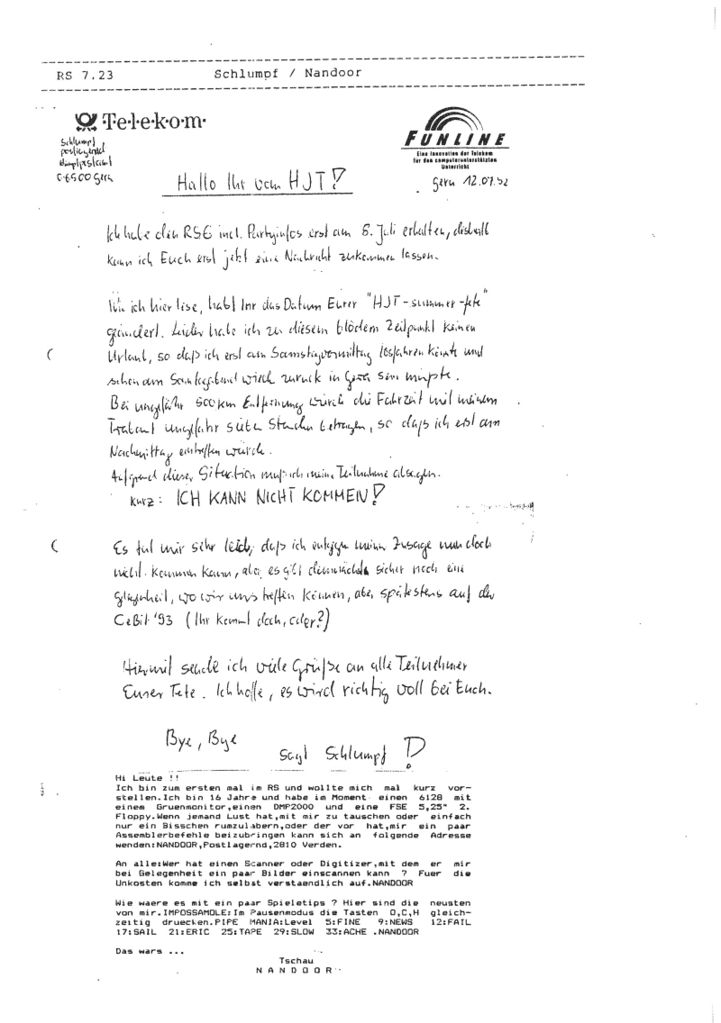 RS 7.23 Schlumpf / Nandoor
T·e·l·e·k·o·m·
FUNLINE
Eine Innovation der Telekom
für den computerunterstützten
Unterricht
Schlumpf
postlagernd
Hauptpostamt
O-6500 Gera
Gera 12.07.92
Hallo Ihr vom HJT!
Ich habe den RS6 incl. Partyinfos erst am 6. Juli erhalten, deshalb
kann ich Euch erst jetzt eine Nachricht zukommen lassen.
Wie ich hier lese, habt Ihr das Datum Eurer "HJT-summer-fete"
geändert. Leider habe ich zu diesem blödem Zeitpunkt keinen
Urlaub, so daß ich erst am Samstagvormittag losfahren könnte und
schon am Sonntagabend wieder zurück in Gera sein müßte.
Bei ungefähr 500km Entfernung würde die Fahrzeit mit meinem
Trabant ungefähr sieben Stunden betragen, so daß ich erst am
Nachmittag eintreffen würde.
Aufgrund dieser Situation muß ich meine Teilnahme absagen.
kurz: ICH KANN NICHT KOMMEN!
Es tut mir sehr leid, daß ich entgegen meiner Zusage nun doch
nicht kommen kann, aber es gibt demnächst sicher noch eine
Gelegenheit, wo wir uns treffen können, aber spätestens auf der
CeBit '93 (Ihr kommt doch, oder?)
Hiermit sende ich viele Grüße an alle Teilnehmer
Eurer Fete. Ich hoffe, es wird richtig voll bei Euch.
Bye, Bye
sagt Schlumpf!
Hi Leute !!
Ich bin zum ersten mal im RS und wollte mich mal kurz vor-
stellen.Ich bin 16 Jahre und habe im Moment einen 6128 mit
einem Gruenmonitor,einen DMP2000 und eine FSE 5,25" 2.
Floppy.Wenn jemand Lust hat,mit mir zu tauschen oder einfach
nur ein Bisschen rumzulabern,oder der vor hat,mir ein paar
Assemblerbefehle beizubringen kann sich an folgende Adresse
wenden:NANDOOR,Postlagernd,2810 Verden.
An alle:Wer hat einen Scanner oder Digitizer,mit dem er mir
bei Gelegenheit ein paar Bilder einscannen kann ? Fuer die
Unkosten komme ich selbst verstaendlich auf.NANDOOR
Wie waere es mit ein paar Spieletips ? Hier sind die neusten
von mir.IMPOSSAMOLE:Im Pausenmodus die Tasten O,C,H gleich-
zeitig druecken.PIPE MANIA:Level 5:FINE 9:NEWS 12:FAIL
17:SAIL 21:ERIC 25:TAPE 29:SLOW 33:ACHE .NANDOOR
Das wars ...
Tschau
N A N D O O R